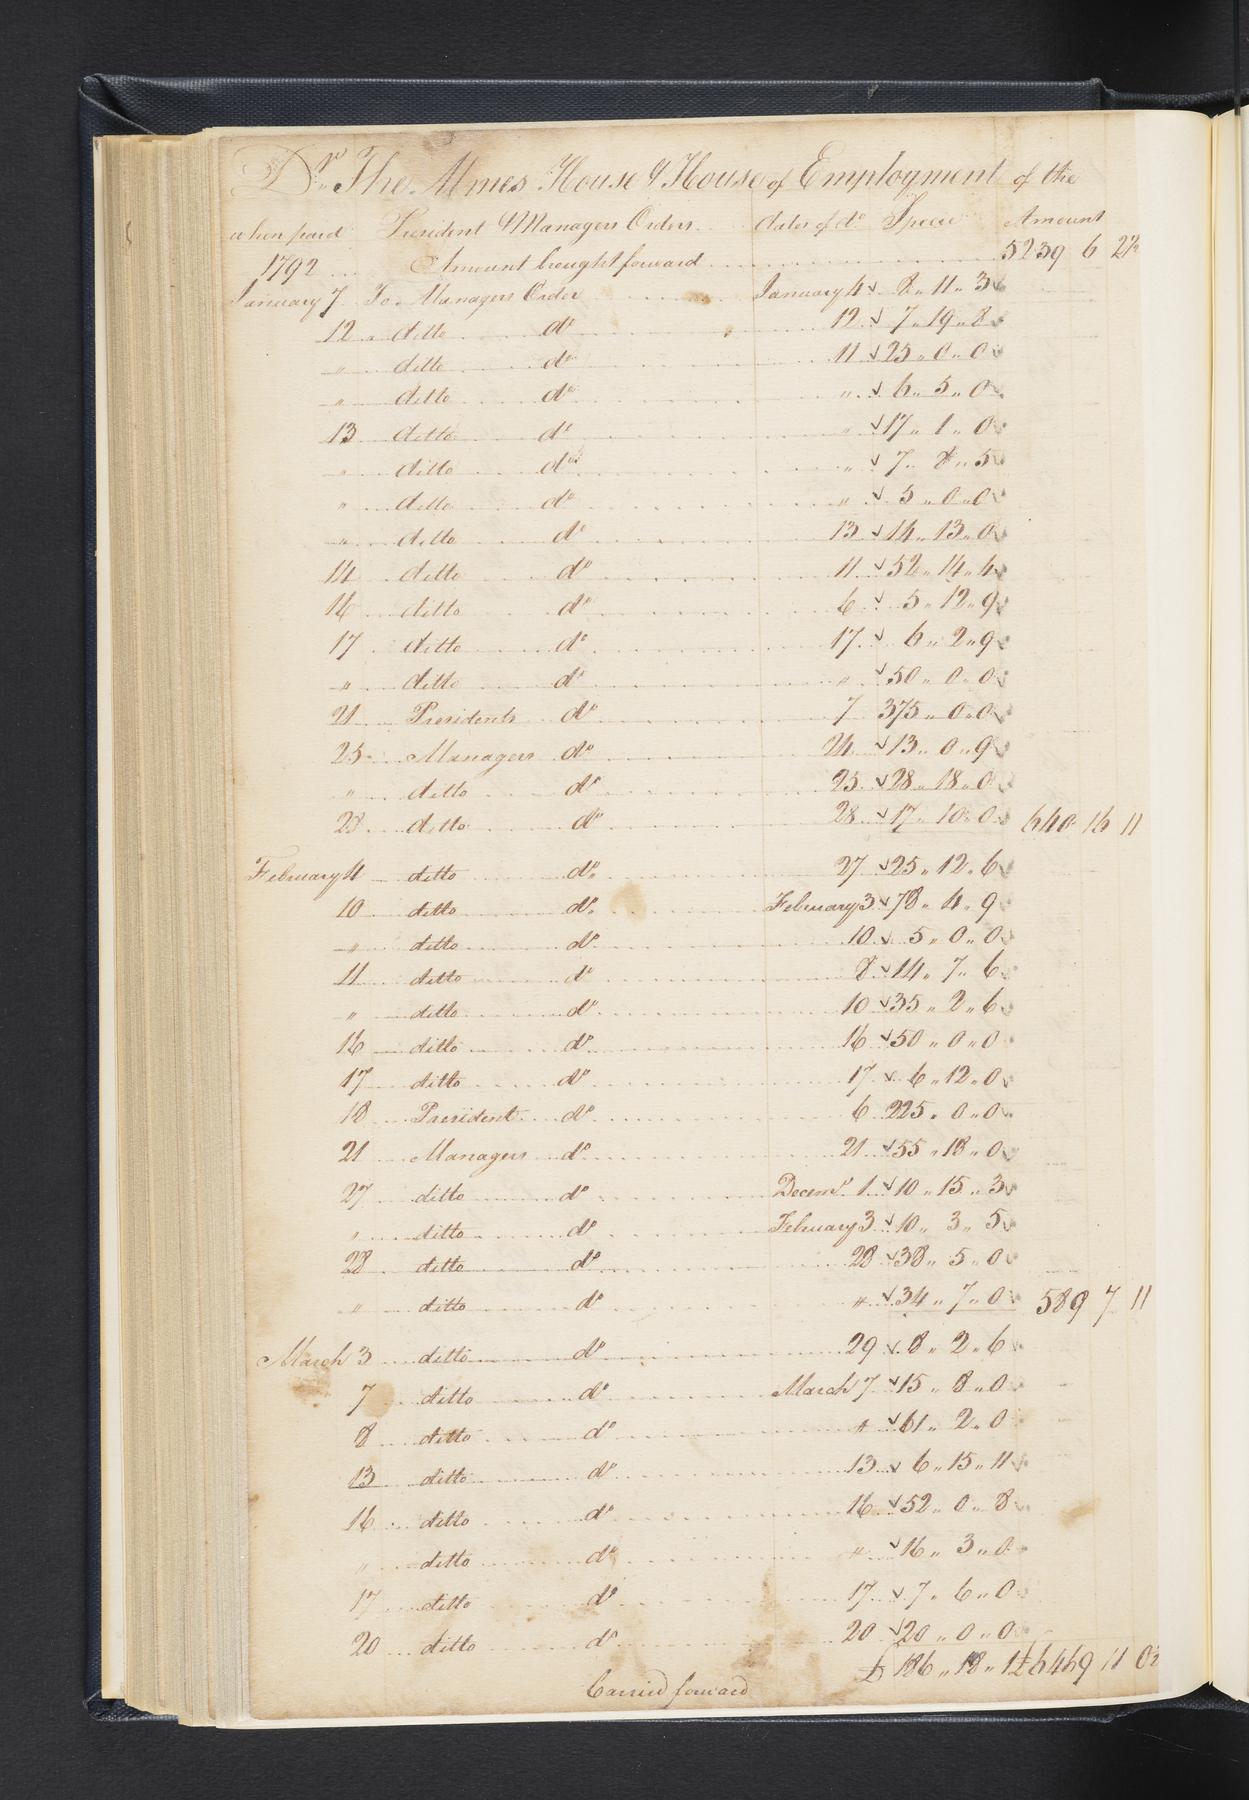 Dr. The Almes House & House of Employment of the
when paid President & Managers Orders dates of do. Specie Amount
1792 Amount brought forward 5239 6 2½
January 7 To Managers Order January 4 8 " 11 " 3
12 ditto do 12 7 " 19 " 8
" ditto do 11 25 " 0 " 0
" ditto do " 6 " 5 " 0
13 ditto do " 17 " 1 " 0
" ditto do " 7 " 8 " 5
" ditto do " 5 " 0 " 0
" ditto do 13 14 " 13 " 0
14 ditto do 11 52 " 14 " 4
16 ditto do 6 5 " 12 " 9
17 ditto do 17 6 " 2 " 9
" ditto do " 50 " 0 " 0
21 Presidents do 7 375 " 0 " 0
25 Managers do 24 13 " 0 " 9
" ditto do 25 28 " 18 " 0
28 ditto do 28 17 " 10 " 0 640 16 11
February 4 ditto do 27 25 " 12 " 6
10 ditto do February 3 78 " 4 " 9
" ditto do 10 5 " 0 " 0
11 ditto do 8 14 " 7 " 6
" ditto do 10 35 " 2 " 6
16 ditto do 16 50 " 0 " 0
17 ditto do 17 6 " 12 " 0
18 President do 6 225 " 0 " 0
21 Managers do 21 55 " 18 " 0
27 ditto do Decemr. 1 10 " 15 " 3
" ditto do February 3 10 " 3 " 5
28 ditto do 28 38 " 5 " 0
" ditto do " 34 " 7 " 0 589 7 11
March 3 ditto do 29 8 " 2 " 6
7 ditto do March 7 15 " 8 " 0
8 ditto do " 61 " 2 " 0
13 ditto do 13 6 " 15 " 11
16 ditto do 16 52 " 0 " 8
" ditto do " 16 " 3 " 0
17 ditto do 17 7 " 6 " 0
20 ditto do 20 20 " 0 " 0
Carried forward £ 186 " 18 " 1 £ 6469 11 0½